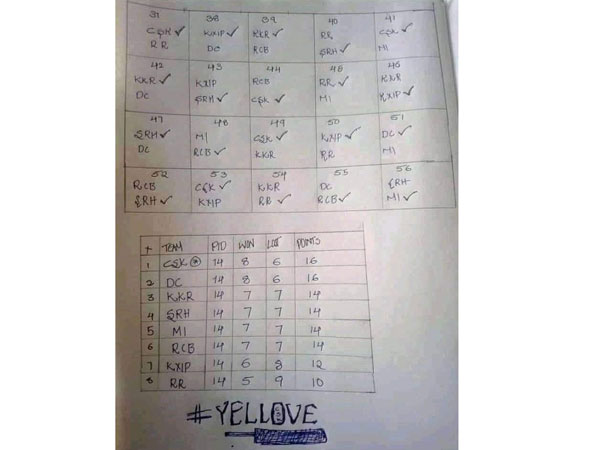 37 38 39 40 41
CSK ✓ KXIP ✓ KKR ✓ RR CSK ✓
RR DC RCB SRH ✓ MI
42 43 44 45 46
KKR ✓ KXIP RCB RR ✓ KKR
DC SRH ✓ CSK ✓ MI KXIP ✓
47 48 49 50 51
SRH ✓ MI CSK ✓ KXIP ✓ DC ✓
DC RCB ✓ KKR RR MI
52 53 54 55 56
RCB CSK ✓ KKR DC SRH
SRH ✓ KXIP RR ✓ RCB ✓ MI ✓
TEAM PID WIN LOST POINTS
1 CSK 14 8 6 16
2 DC 14 8 6 16
3 KKR 14 7 7 14
4 SRH 14 7 7 14
5 MI 14 7 7 14
6 RCB 14 7 7 14
7 KXIP 14 6 8 12
8 RR 14 5 9 10
#YELLOVE